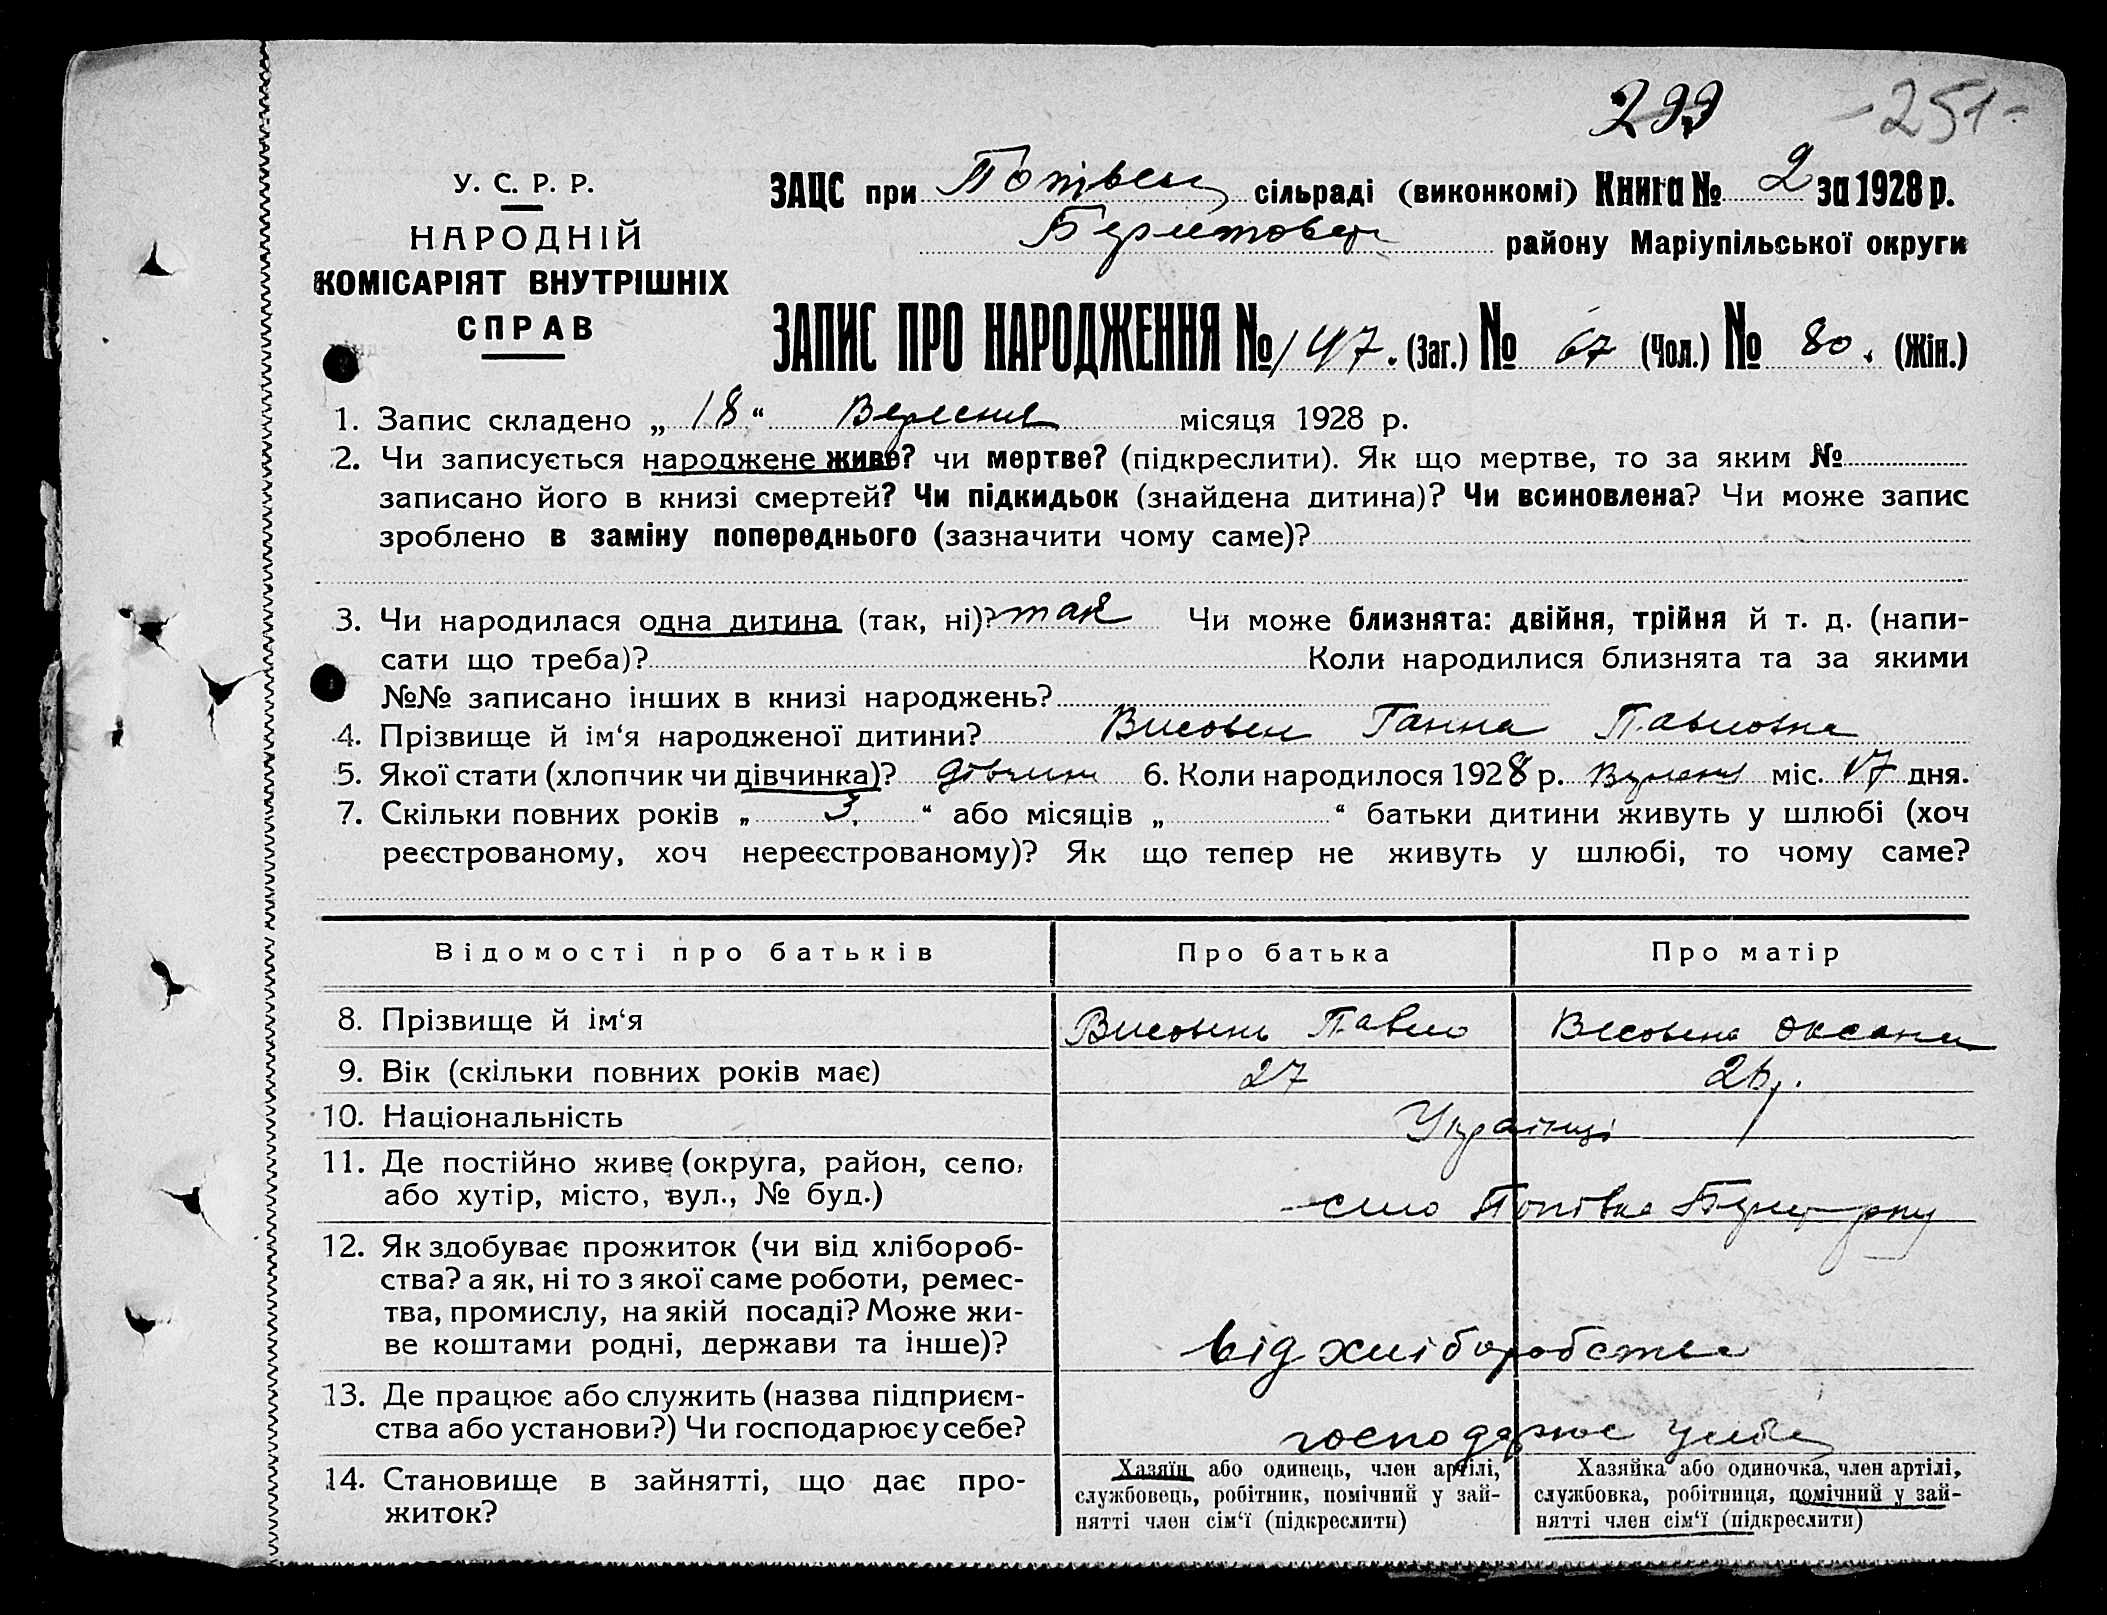 299 -251-
У. С. Р. Р.
НАРОДНІЙ
КОМІСАРІЯТ ВНУТРІШНІХ
СПРАВ
ЗАЦС при сільраді (виконкомі) Книга № 2 за 1928 р.
району Маріупільської округи
ЗАПИС ПРО НАРОДЖЕННЯ № 147. (Заг.) № 67 (Чол.) № 80. (Жін.)
1. Запис складено „ 18 “ Вересня місяця 1928 р.
2. Чи записується народжене живе? чи мертве? (підкреслити). Як що мертве, то за яким №
записано його в книзі смертей? Чи підкидьок (знайдена дитина)? Чи всиновлена? Чи може запис
зроблено в заміну попереднього (зазначити чому саме)?
3. Чи народилася одна дитина (так, ні)? так Чи може близнята: двійня, трійня й т. д. (напи-
сати що треба)? Коли народилися близнята та за якими
№№ записано інших в книзі народжень?
4. Прізвище й ім‘я народженої дитини? Ганна Павловна
5. Якої стати (хлопчик чи дівчинка)? 6. Коли народилося 1928 р. Вересня міс. 17 дня.
7. Скільки повних років „ 3. “ або місяців „ “ батьки дитини живуть у шлюбі (хоч
реєстрованому, хоч нереєстрованому)? Як що тепер не живуть у шлюбі, то чому саме?
Відомості про батьків Про батька Про матір
8. Прізвище й ім‘я Павло Оксана
9. Вік (скільки повних років має) 27 26 р.
10. Національність Українці
11. Де постійно живе (округа, район, село,
або хутір, місто, вул., № буд.) село Попівка
12. Як здобуває прожиток (чи від хлібороб-
ства? а як, ні то з якої саме роботи, ремес-
тва, промислу, на якій посаді? Може жи-
ве коштами родні, держави та інше)? від хліборобства
13. Де працює або служить (назва підприєм-
ства або установи?) Чи господарює у себе? господарює у себе
14. Становище в зайнятті, що дає про-
житок?
Хазяїн або одинець, член артілі,
службовець, робітник, помічний у зай-
нятті член сім‘ї (підкреслити)
Хазяйка або одиночка, член артілі,
службовка, робітниця, помічний у зай-
нятті член сім‘ї (підкреслити)